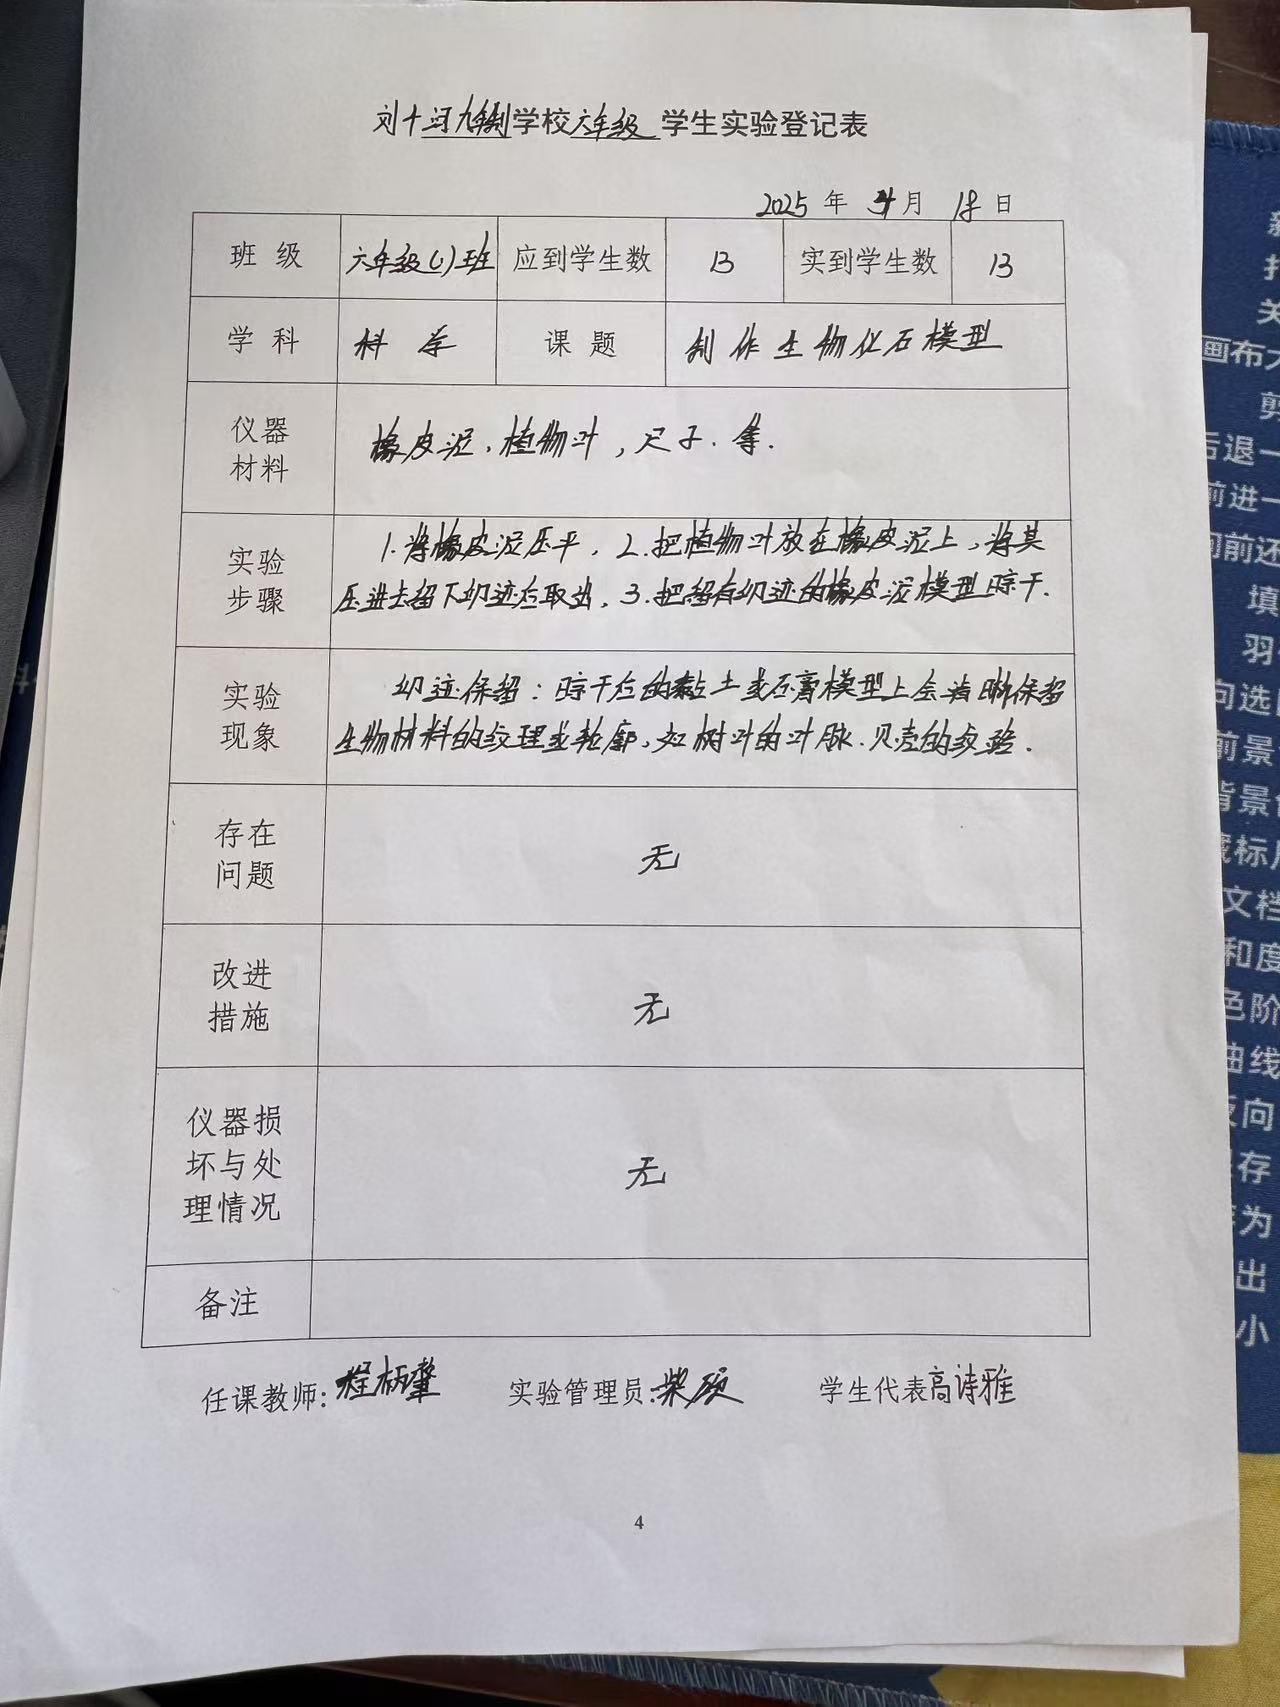 刘十河九年制学校六年级 学生实验登记表
2025 年 4月 18 日
班 级 六年级(1)班 应到学生数 13 实到学生数 13
学 科 科 学 课 题 制作生物化石模型
仪器
材料
橡皮泥、植物叶,尺子.等.
实验
步骤
1.将橡皮泥压平, 2.把植物叶放在橡皮泥上,将其
压进去留下印迹后取出, 3.把留有印迹的橡皮泥模型晾干.
实验
现象
印迹保留:晾干后的黏土或石膏模型上会清晰保留
生物材料的纹理或轮廓,如树叶的叶脉.贝壳的纹路.
存在
问题
无
改进
措施
无
仪器损
坏与处
理情况
无
备注
任课教师: 程炳肇 实验管理员: 柴硕 学生代表高诗雅
4
画布大
剪
后退一
前进一
间前还
填
羽
向选
前景
背景
标
文档
和度
色阶
曲线
反向
存
为
出
小